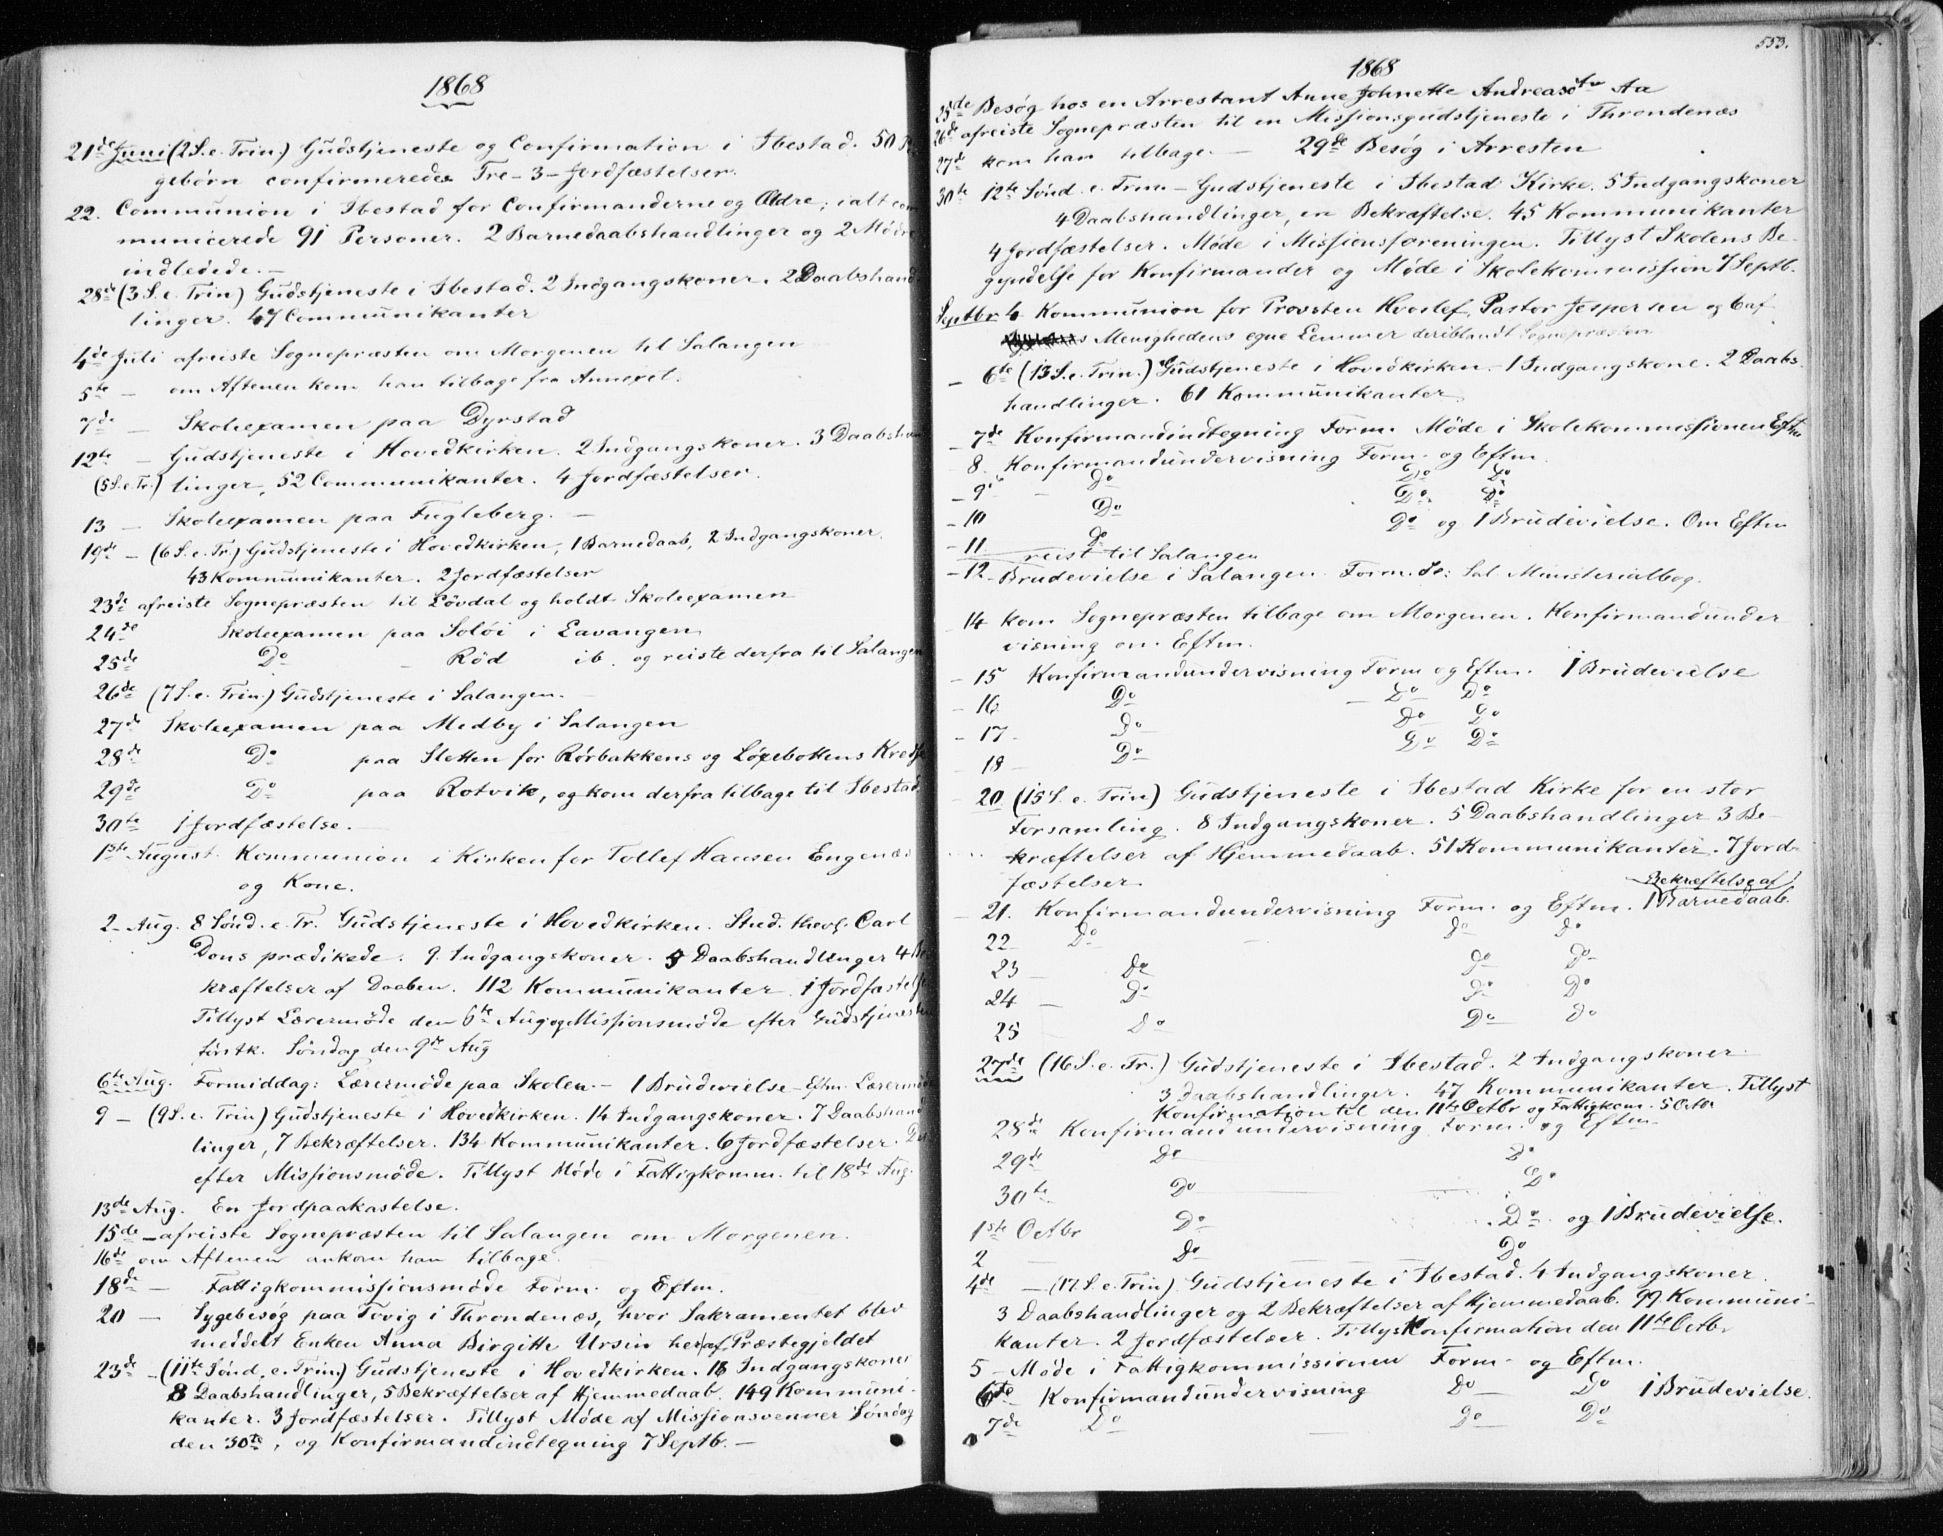 1868
21de Juni (2 S. e. Trin) Gudstjeneste og Confirmation i Ibestad. 50
gebørn confirmeredes Tre - 3 - Jordfæstelser.
22. Communion i Ibestad for Confirmanderne og Ældre; ialt com
municerede 91 Personer. 2 Barnedaabshandlinger og 2 Mødre
indledede. -
28de (3 S. e. Trin) Gudstjeneste i Ibestad. 2 Indgangskoner. 2 Daabshand
linger. 47 Communikanter
4de Juli afreiste Sognepræsten om Morgenen til Salangen
5te - om Aftenen kom han tilbage fra Annexet.
7de - Skoleexamen paa Dyrstad
12te - Gudstjeneste i Hovedkirken. 2 Indgangskoner. 3 Daabshan
(5 S. e. Tr.) linger, 52 Communikanter. 4 Jordfæstelser.
13 - Skoleexamen paa Fugleberg. -
19de - (6 S. e. Tr.) Gudstjeneste i Hovedkirken, 1 Barnedaab, 2 Indgangskoner.
43 Kommunikanter. 2 Jordfæstelser
23de afreiste Sognepræsten til Løvdal og holdt Skoleexamen
24de Skoleexamen paa Soløi i Lavangen
25de Do - Rød ib. og reiste derfra til Salangen
26de (7 S. e. Trin.) Gudstjeneste i Salangen. -
27de Skoleexamen paa Medby i Salangen
28de Do paa Sletten for Rørbakkens og Løxebottens Kreds
29de Do paa Rotvik, og kom derfra tilbage til Ibestad
30te 1 Jordfæstelse. -
1ste August. Kommunion i Kirken for Tollef Hansen Engenæs
og Kone.
2 - Aug. 8 Sønd. e. Tr. Gudstjeneste i Hovedkirken. Stud. theol. Carl
Dons prædikede. 9 Indgangskoner. 5 Daabshandlinger 4 Be
kræftelser af Daaben. 112 Kommunikanter. 1 Jordfæstelse
Tillyst Lærermøde den 6te Aug og Missionsmøde efter Gudstjenesten
førstk. Søndag den 9de Aug
6te Aug. Formiddag: Lærermøde paa Skolen. - 1 Brudevielse - Eftm. Lærermøde
9 - (9 S. e. Trin) Gudstjeneste i Hovedkirken. 14 Indgangskoner. 7 Daabshand
linger, 7 Bekræftelser. 134 Kommunikanter. 6 Jordfæstelser.
efter Missionsmøde. Tillyst Møde i Fattigkomm. til 18de Aug.
13de Aug. En Jordpaakastelse.
15de - afreiste Sognepræsten til Salangen om Morgenen.
16de om Aftenen ankom han tilbage.
18de - Fattigkommissionsmøde Form. og Eftm.
20 - Sygebesøg paa Tovig i Throndenæs, hvor Sakramentet blev
meddelt Enken Anna Birgitte Ursin her af Præstegjeldet
23de - (11te Sønd. e. Trin) Gudstjeneste i Hovedkirken. 16 Indgangskoner
8 Daabshandlinger, 5 Bekræftelser af Hjemmedaab. 149 Kommuni-
kanter. 3 Jordfæstelser. Tillyst Møde af Missionsvenner Søndag
den 30te, og Konfirmandindtegning 7 Septb. -
553.
1868
25de Besøg hos en Arrestant Anne Johnette Andreasdtr Aa
26de afreiste Sognepræsten til en Missionsgudstjeneste i Throndenæs
27de kom han tilbage. - 29de Besøg i Arresten
30te 12te Sønd. e. Trin - Gudstjeneste i Ibestad Kirke. 5 Indgangskoner
4 Daabshandlinger, en Bekræftelse. 45 Kommunikanter
4 Jordfæstelser. Møde i Missionsforeningen. Tillyst Skolens Be-
gyndelse for Konfirmander og Møde i Skolekommission 7 Septb.
Septbr 4 Kommunion for Provsten Hvoslef, Pastor Jespersen og 6 af
Menighedens egne Lemmer deriblandt Sognepræsten
- 6te (13 S. e. Trin.) Gudstjeneste i Hovedkirken. - 1 Indgangskone. 2 Daabs
handlinger. 61 Kommunikanter
- 7de Konfirmandindtegning Form. Møde i Skolekommissionen Eftm
- 8. Konfirmandundervisning Form. og Eftm.
- 9de - Do Do Do
- 10 Do Do Do
- 11 Do Do og 1 Brudevielse. Om Eftm
reist til Salangen
- 12 - Brudevielse i Salangen. Form. se: Sal. Ministerialbog.
- 14 kom Sognepræsten tilbage om Morgenen. Konfirmandunder
visning om Eftm.
- 15 Konfirmandundervisning Form og Eftm. 1 Brudevielse
- 16 Do - Do Do
- 17 - Do Do Do
- 18 - Do Do Do
20 (15 S. e. Trin) Gudstjeneste i Ibestad Kirke for en stor
Forsamling. 8 Indgangskoner. 5 Daabshandlinger 3 Be-
kræftelser af Hjemmedaab. 51 Kommunikanter. 7 Jord-
fæstelser.
Bekræftelse af
- 21. Konfirmandundervisning Form. og Eftm. 1 Barnedaab.
22 - Do - Do Do
23 - Do Do Do
24 - Do Do Do
25 Do Do Do
27de (16 S. e. Tr.) Gudstjeneste i Ibestad. 2 Indgangskoner.
3 Daabshandlinger. 47 Kommunikanter. Tillyst
Konfirmation til den 11te Octbr og Fattigkom. 5 Octbr
28de Konfirmandundervisning Form. og Eftm.
29de Do Do
30te Do Do
1ste Octbr Do Do og 1 Brudevielse.
2 - Do Do
4de - (17 S. e. Trin) Gudstjeneste i Ibestad. 4 Indgangskoner.
3 Daabshandlinger og 2 Bekræftelser af Hjemmedaab. 99 Kommuni-
kanter. 2 Jordfæstelser. Tillyst Konfirmation den 11te Octbr
5 Møde i Fattigkommissionen Form. og Eftm.
6te Konfirmandundervisning Do Do 1 Brudevielse.
7de Do - Do Do